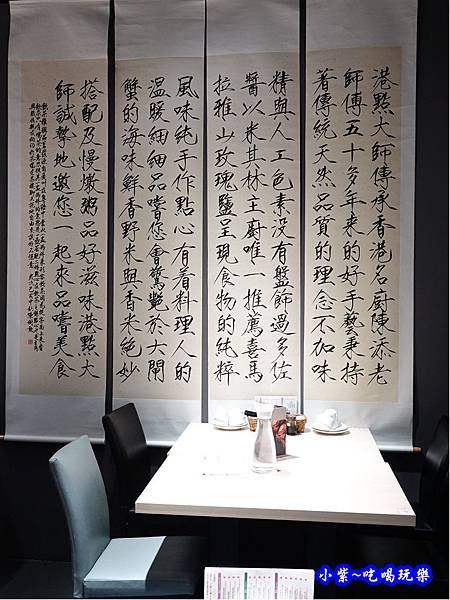 港點大師傳承香港名廚陳添老
師傅五十多年來的好手藝秉持
著傳統天然品質的理念不加味
精與人工色素没有盤飾過多佐
醬以米其林主廚唯一推薦喜馬
拉雅山玫瑰鹽呈現食物的純粹
風味純手作點心有着料理人的
溫暖細細品嚐您會驚艷於大閘
蟹的海味鮮香野米與香米絕妙
搭配及慢燉粥品好滋味港點大
師誠摯地邀您一起來品嚐美食
小紫~吃喝玩樂